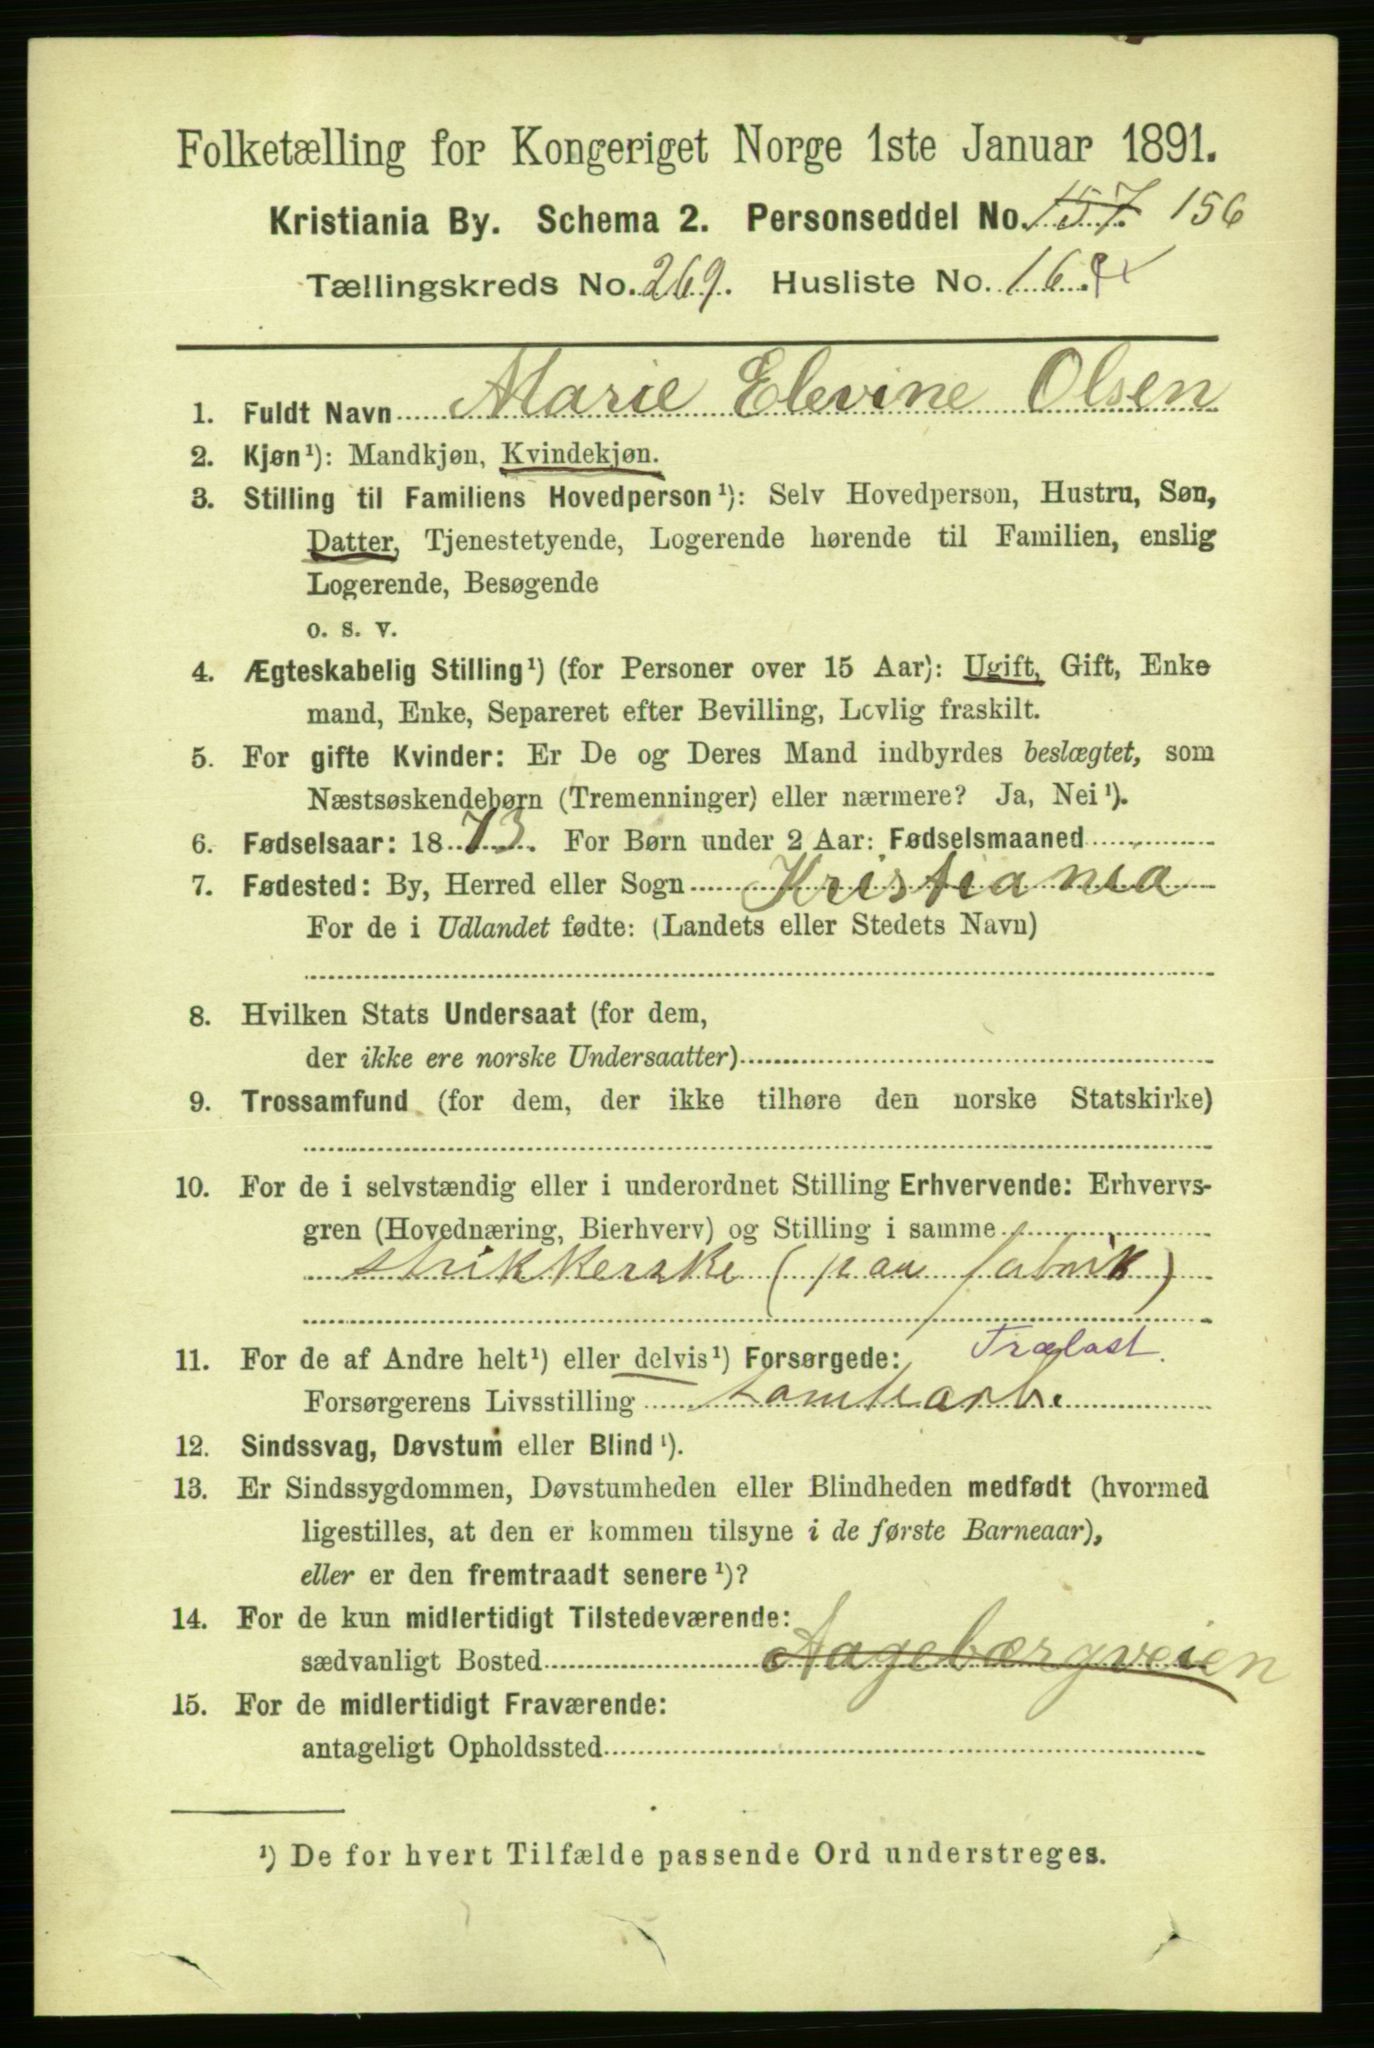 Folketælling for Kongeriget Norge 1ste Januar 1891.
Kristiania By. Schema 2. Personseddel No. 157. 156
Tællingskreds No. 269. Husliste No. 16.
1. Fuldt Navn Marie Elevine Olsen
2. Kjøn¹): Mandkjøn, Kvindekjøn.
3. Stilling til Familiens Hovedperson¹): Selv Hovedperson, Hustru, Søn,
Datter, Tjenestetyende, Logerende hørende til Familien, enslig
Logerende, Besøgende
o. s. v.
4. Ægteskabelig Stilling¹) (for Personer over 15 Aar): Ugift, Gift, Enke
mand, Enke, Separeret efter Bevilling, Lovlig fraskilt.
5. For gifte Kvinder: Er De og Deres Mand indbyrdes beslægtet, som
Næstsøskendebørn (Tremenninger) eller nærmere? Ja, Nei¹).
6. Fødselsaar: 1873. For Børn under 2 Aar: Fødselsmaaned
7. Fødested: By, Herred eller Sogn Kristiania
For de i Udlandet fødte: (Landets eller Stedets Navn)
8. Hvilken Stats Undersaat (for dem,
der ikke ere norske Undersaatter)
9. Trossamfund (for dem, der ikke tilhøre den norske Statskirke)
10. For de i selvstændig eller i underordnet Stilling Erhvervende: Erhvervs-
gren (Hovednæring, Bierhverv) og Stilling i samme
strikkerske (paa fabrik)
11. For de af Andre helt¹) eller delvis¹) Forsørgede: Trælast.
Forsørgerens Livsstilling tomtearb.
12. Sindssvag, Døvstum eller Blind¹).
13. Er Sindssygdommen, Døvstumheden eller Blindheden medfødt (hvormed
ligestilles, at den er kommen tilsyne i de første Barneaar),
eller er den fremtraadt senere¹)?
14. For de kun midlertidigt Tilstedeværende:
sædvanligt Bosted Aagebærgveien
15. For de midlertidigt Fraværende:
antageligt Opholdssted
¹) De for hvert Tilfælde passende Ord understreges.